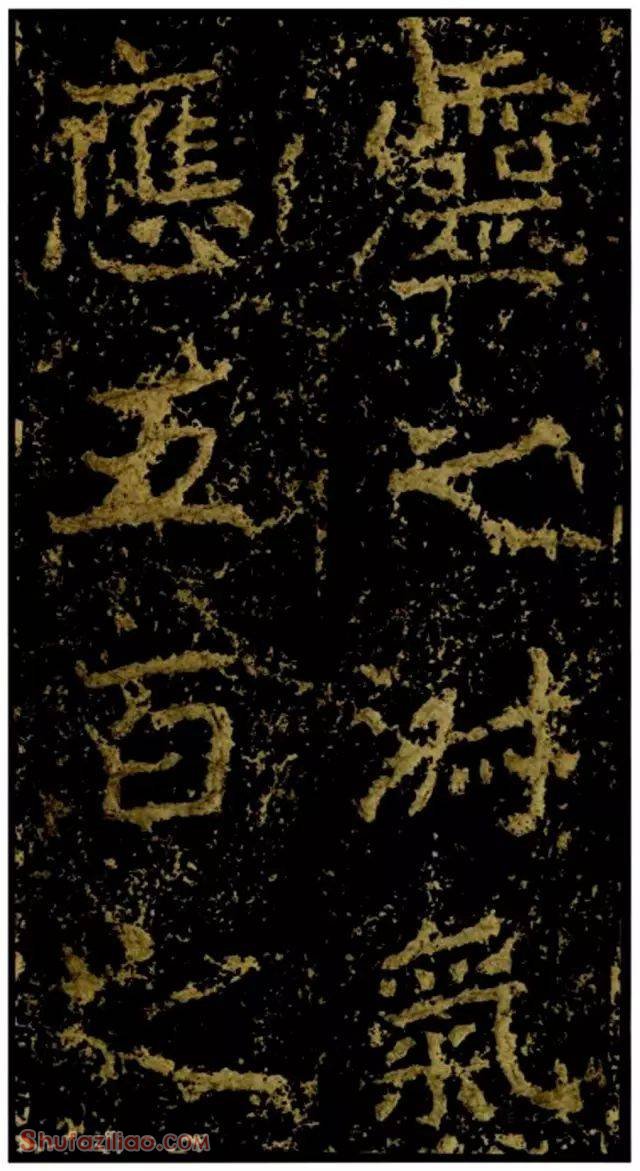 靈之氣
應五百之
Shufaziliao.com